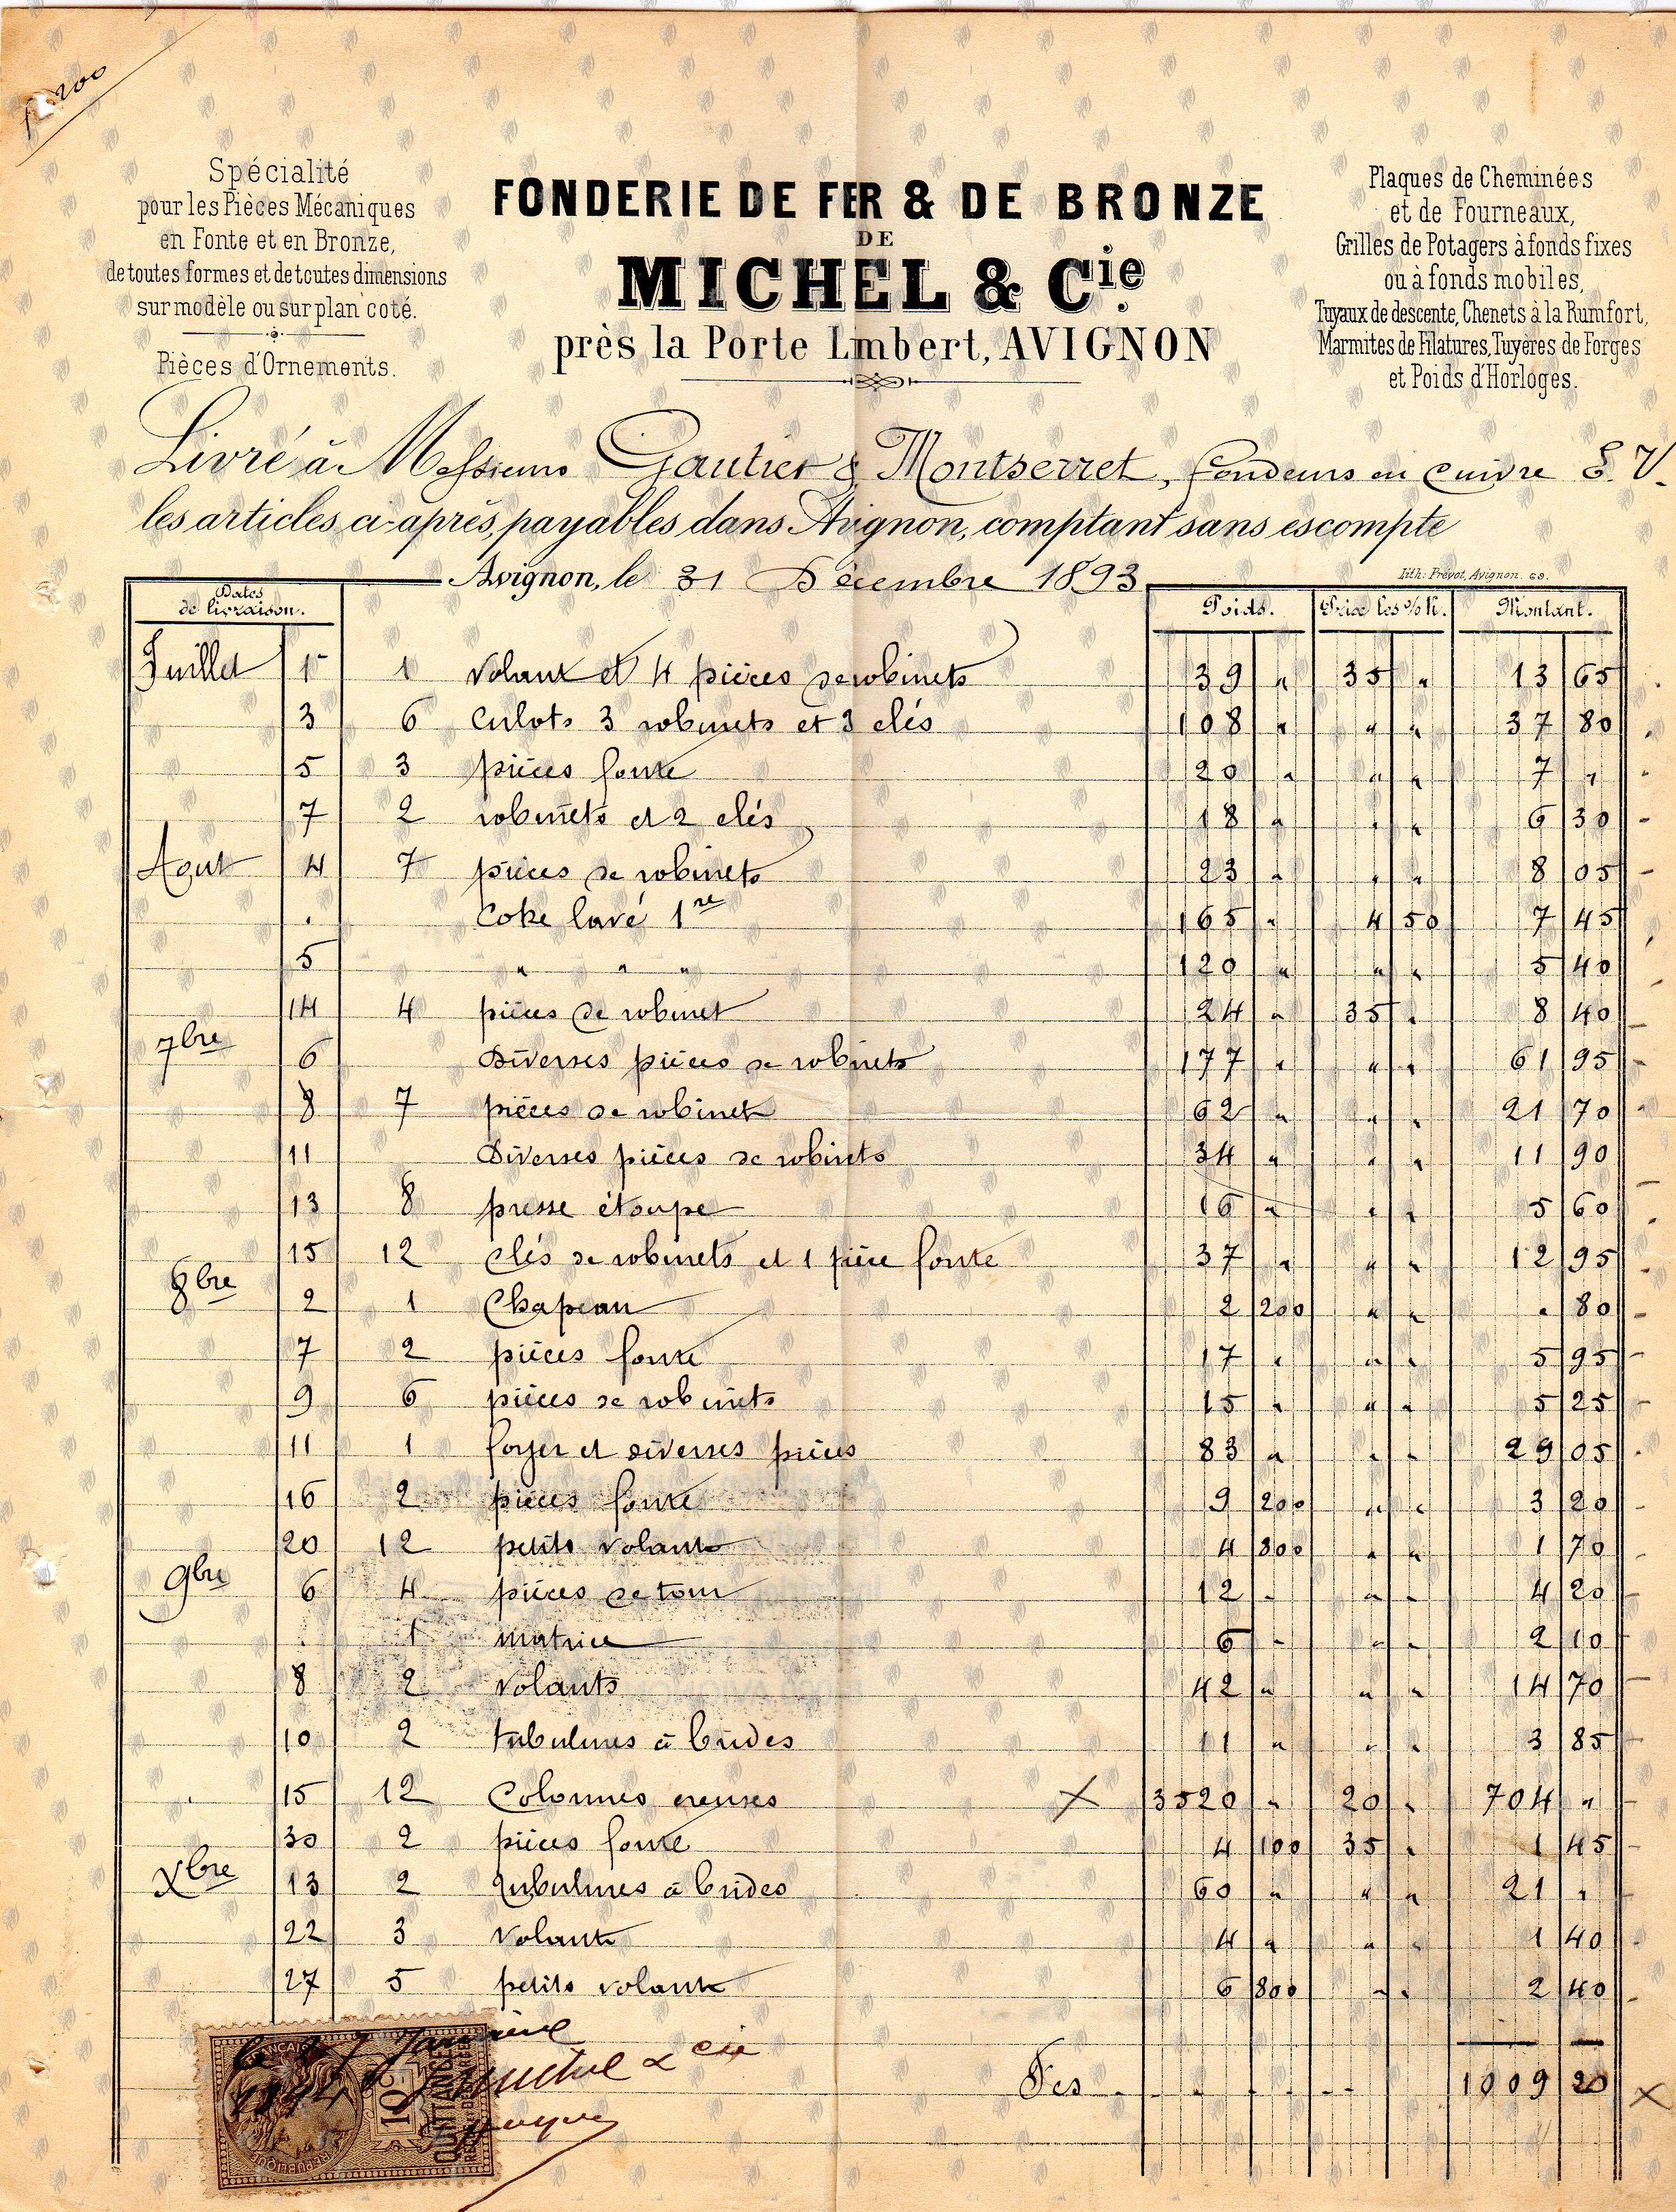 f. 200
Spécialité
pour les Pièces Mécaniques
en Fonte et en Bronze,
de toutes formes et de toutes dimensions
sur modèle ou sur plan coté.
Pièces d'Ornements.
FONDERIE DE FER & DE BRONZE
DE
MICHEL & Cie.
près la Porte Limbert, AVIGNON
Plaques de Cheminées
et de Fourneaux,
Grilles de Potagers à fonds fixes
ou à fonds mobiles,
Tuyaux de descente, Chenets à la Rumfort,
Marmites de Filatures, Tuyères de Forges
et Poids d'Horloges.
Livré à Messieurs Gautier & Montserret, fondeurs en cuivre E. V.
les articles ci-après, payables dans Avignon, comptant sans escompte
Avignon, le 31 Décembre 1893
Lith: Prévot, Avignon. 69.
Dates de livraison. Poids. Prix les % K. Montant.
Juillet 1er 1 Volant et 4 pièces de robinets 39 " 35 " 13 65
3 6 Culots 3 robinets et 3 clés 108 " " " 37 80
5 3 pièces fonte 20 " " " 7 "
7 2 robinets et 2 clés 18 " " " 6 30
Aout 4 7 pièces de robinets 23 " " " 8 05
. Coke lavé 1re 165 " 4 50 7 45
5 " " " 120 " " " 5 40
14 4 pièces de robinet 24 " 35 " 8 40
7bre 6 Diverses pièces de robinets 177 " " " 61 95
8 7 pièces de robinet 62 " " " 21 70
11 Diverses pièces de robinets 34 " " " 11 90
13 8 presse étoupe 16 " " " 5 60
15 12 clés de robinets et 1 pièce fonte 37 " " " 12 95
8bre 2 1 Chapeau 2 200 " " " 80
7 2 pièces fonte 17 " " " 5 95
9 6 pièces de robinets 15 " " " 5 25
11 1 foyer et diverses pièces 83 " " " 29 05
16 2 pièces fonte 9 200 " " 3 20
20 12 petits volants 4 800 " " 1 70
9bre 6 4 pièces de tour 12 " " " 4 20
. 1 matrice 6 " " " 2 10
8 2 Volants 42 " " " 14 70
10 2 tubulures à brides 11 " " " 3 85
15 12 Colonnes creuses X 3520 " 20 " 704 "
30 2 pièces fonte 4 100 35 " 1 45
Xbre 13 2 tubulures à brides 60 " " " 21 "
22 3 Volants 4 " " " 1 40
27 5 petits volants 6 800 " " 2 40
Fcs 1009 20 X
Michel & cie
10 C.
QUITTANCES